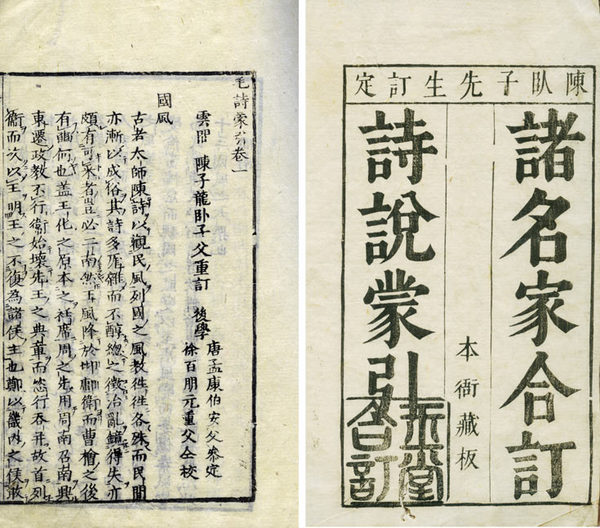 陳臥子先生訂定
諸名家合訂
本衙藏板
詩說蒙引
毛詩蒙引卷一
國風
雲間 陳子龍臥子父重訂
後學 唐孟康伯安父參定
徐百朋元重父仝校
古者太師陳詩以觀民風列國之風教徃徃各殊而民間
亦漸以成俗其詩多厖雜而不醇總之徵治亂鏡得失亦
頗有可采者豈必二南然王風降於邶鄘衛而曹檜之後
有豳何也盖王化之原本之袵席周之先用周南召南興
東遷政教不行衛始壞先王之典章而恣行吞并故首列
衛而次以王明王之不復為諸侯主也鄭以畿内之侯